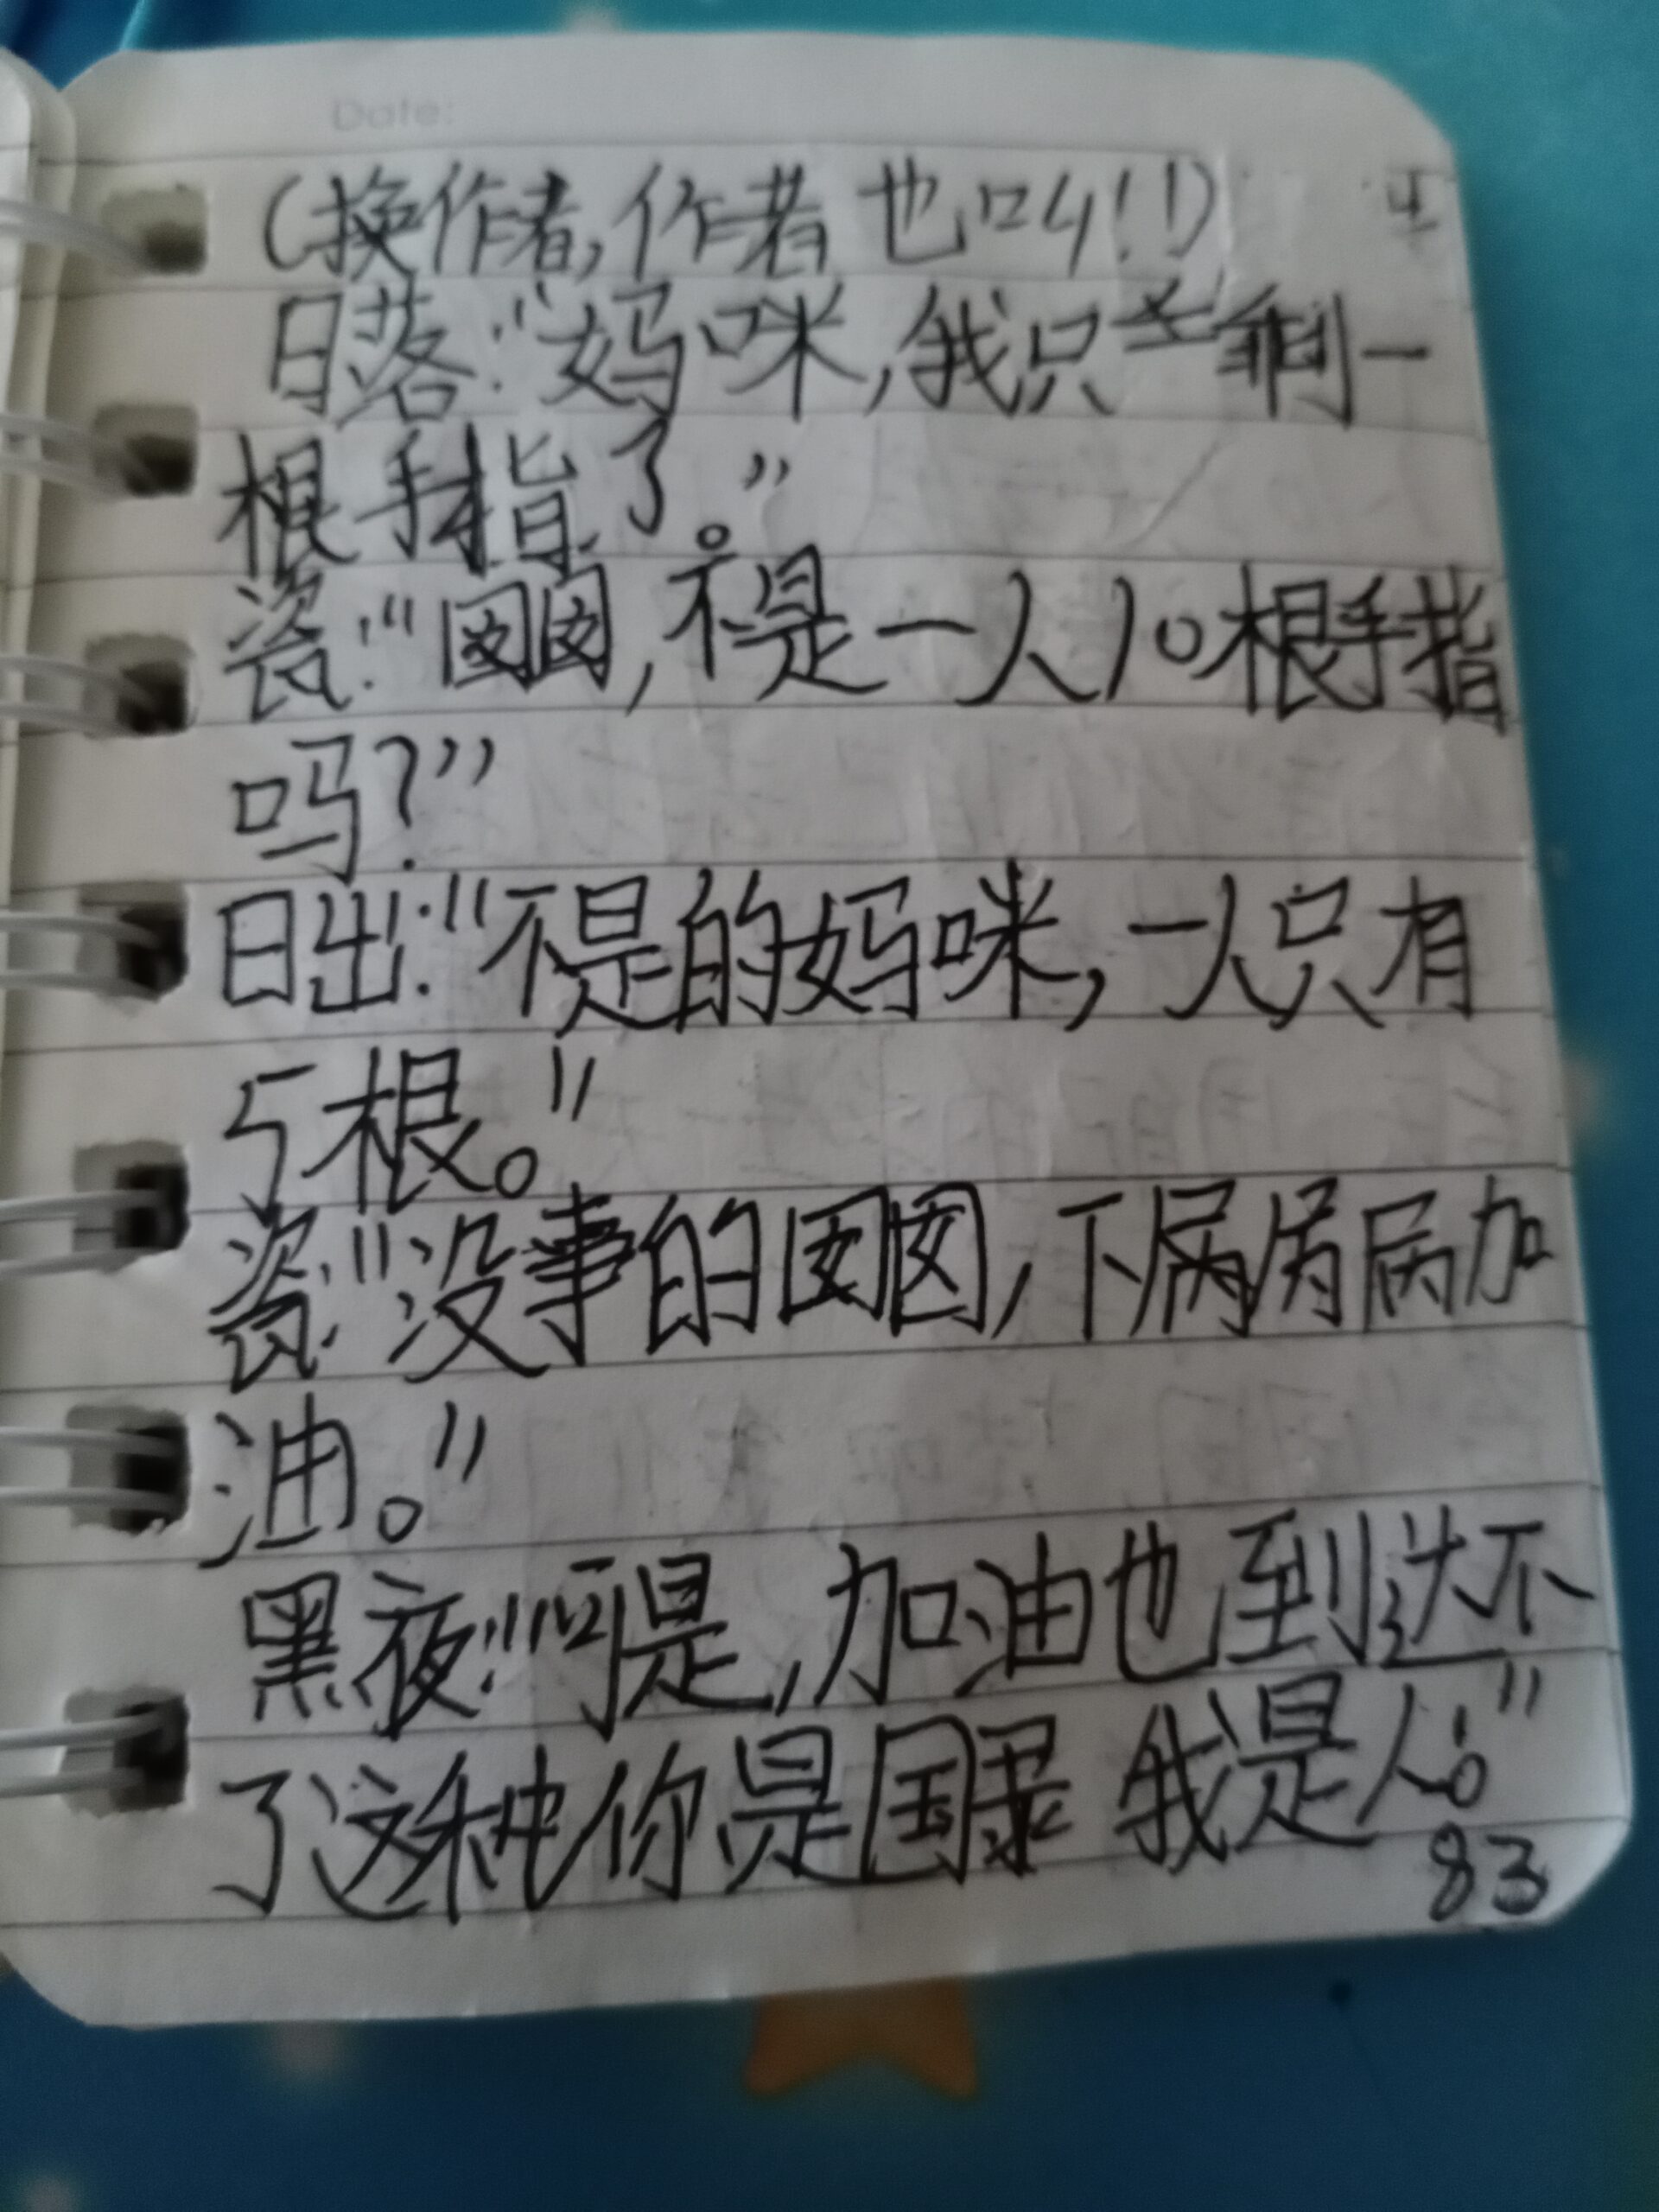 Date:
(换作者,作者也叫!!)
日落:“妈咪,我只剩一
根手指了。”
瓷:“囡囡,不是一人10根手指
吗?”
日出:“不是的妈咪,一人只有
5根。”
瓷:“没事的囡囡,下局加
油。”
黑夜:“可是,加油也到达不
了这种你是国 我是人。”
83